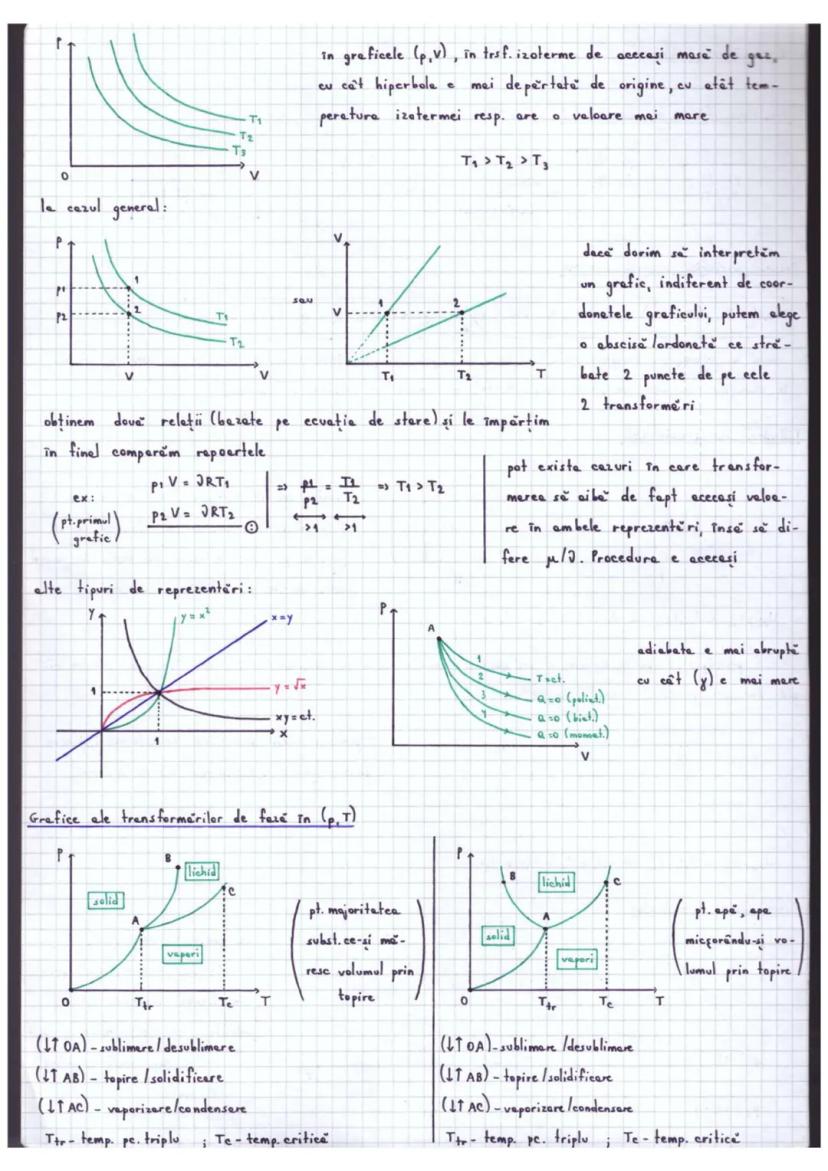 p
T₁
T₂
T₃
0
V
în graficele (p,V), în trsf. izoterme de aceeași masă de gaz,
cu cât hiperbola e mai depărtată de origine, cu atât tem-
peratura izotermei resp. are o valoare mai mare
T₁ > T₂ > T₃
la cazul general:
p
p₁
p₂
1
2
T₁
T₂
V
V
sau
V
V
1
2
T₁
T₂
T
dacă dorim să interpretăm
un grafic, indiferent de coor-
donatele graficului, putem alege
o abscisă/ordonată ce stră-
bate 2 puncte de pe cele
2 transformări
obținem două relații (bazate pe ecuația de stare) și le împărțim
în final comparăm rapoartele
ex:
(pt. primul
grafic)
p₁ V = νRT₁
p₂ V = νRT₂
:
=> p₁/p₂ = T₁/T₂ => T₁ > T₂
>1 >1
pot exista cazuri în care transfor-
marea să aibă de fapt aceeași valoa-
re în ambele reprezentări, însă să di-
fere μ/ν. Procedura e aceeași
alte tipuri de reprezentări:
y
y = x²
x = y
1
y = √x
xy = ct.
x
1
p
A
1
2
3
4
T = ct.
Q = 0 (poliat.)
Q = 0 (biat.)
Q = 0 (monoat.)
V
adiabata e mai abruptă
cu cât (γ) e mai mare
Grafice ale transformărilor de fază în (p,T)
p
B
lichid
solid
C
A
vapori
0
Ttr
Tc
T
(pt. majoritatea
subst. ce-și mă-
resc volumul prin
topire)
(↓↑ OA) - sublimare/desublimare
(↓↑ AB) - topire/solidificare
(↓↑ AC) - vaporizare/condensare
Ttr - temp. pc. triplu ; Tc - temp. critică
p
B
lichid
C
A
solid
vapori
0
Ttr
Tc
T
(pt. apă, apa
micșorându-și vo-
lumul prin topire)
(↓↑ OA) - sublimare/desublimare
(↓↑ AB) - topire/solidificare
(↓↑ AC) - vaporizare/condensare
Ttr - temp. pc. triplu ; Tc - temp. critică